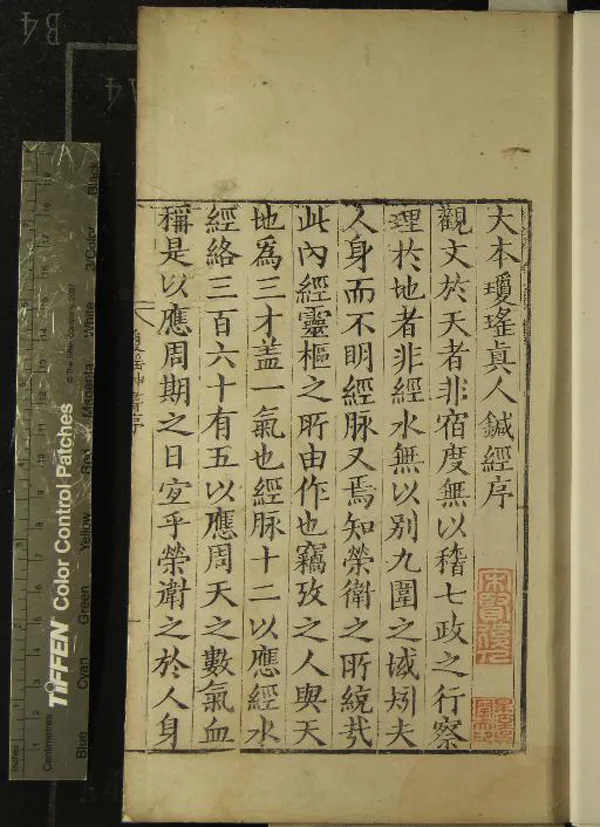 大本瓊瑤眞人鍼經序
觀文於天者非宿度無以稽七政之行察
理於地者非經水無以別九圍之域矧夫
人身而不明經脉又焉知榮衛之所統㢤
此內經靈樞之所由作也竊攷之人與天
地爲三才盖一氣也經脉十二以應經水
經絡三百六十有五以應周天之數氣血
稱是以應周期之日宜乎榮衛之於人身
B4
A4
Inches
Centimetres
TIFFEN Color Control Patches
© The Tiffen Company, 2007
Blue
Cyan
Green
Yellow
Red
Magenta
White
3/Color
Black